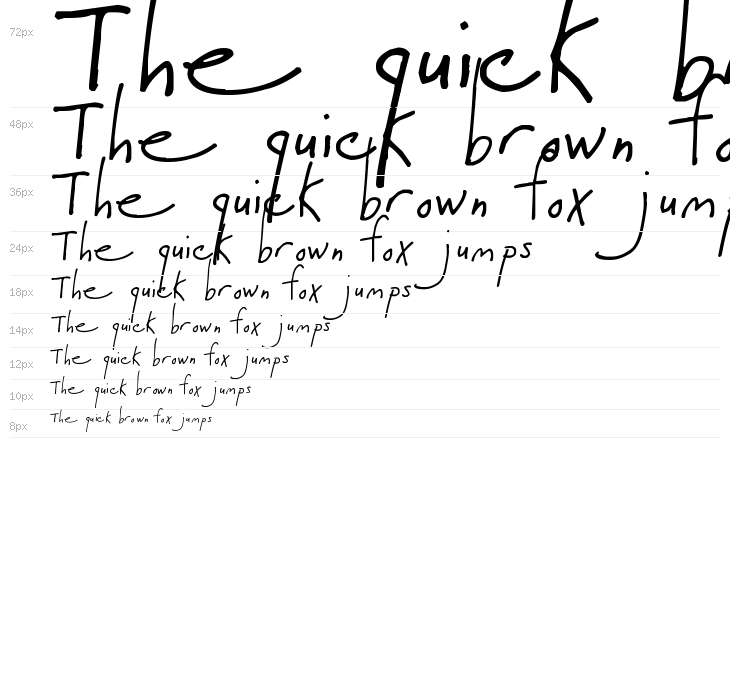 72px The quick b
48px The quick brown fo
36px The quick brown fox jump
24px The quick brown fox jumps
18px The quick brown fox jumps
14px The quick brown fox jumps
12px The quick brown fox jumps
10px The quick brown fox jumps
8px The quick brown fox jumps